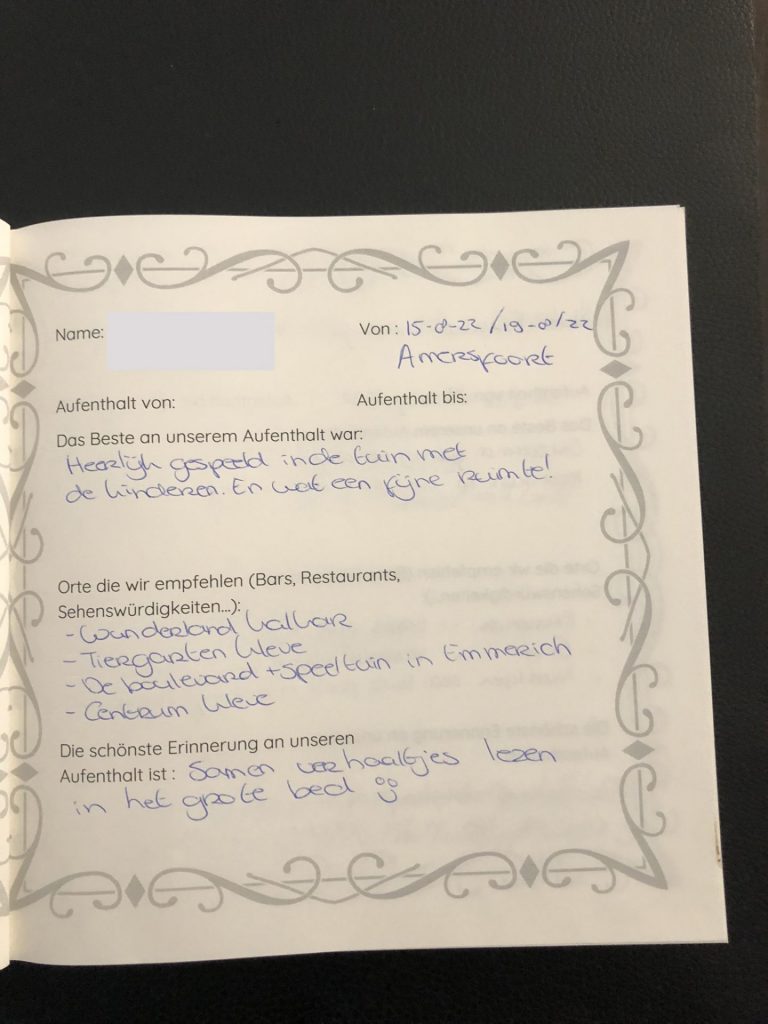 Name:
Von : 15-8-22 / 19-8/22
Amersfoort
Aufenthalt von:
Aufenthalt bis:
Das Beste an unserem Aufenthalt war:
Heerlijk gespeeld in de tuin met
de kinderen. En wat een fijne ruimte!
Orte die wir empfehlen (Bars, Restaurants,
Sehenswürdigkeiten...):
- Wunderland Kalkar
- Tiergarten Kleve
- De boulevard + speeltuin in Emmerich
- Centrum Kleve
Die schönste Erinnerung an unseren
Aufenthalt ist : Samen verhaaltjes lezen
in het grote bed